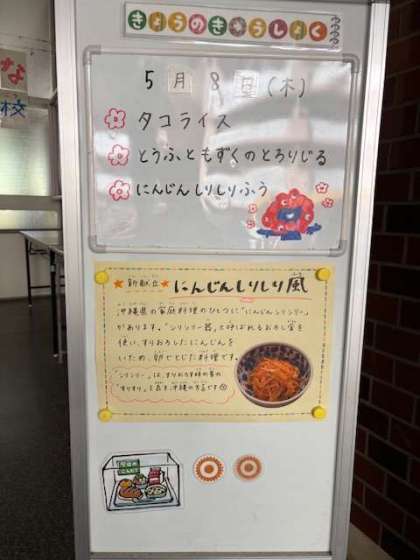 きょうのきゅうしょく
5月8日(木)
タコライス
とうふともずくのとろりじる
にんじんしりしりふう
新献立
にんじんしりしり風
沖縄県の家庭料理のひとつに「にんじんシリシリー」
があります。「シリシリー器」と呼ばれるおろし金を
使い、すりおろしたにんじんを
いため、卵でとじた料理です。
「シリシリー」は、すりおろす時の音の
「すりすり」を表す沖縄の方言です
な
校